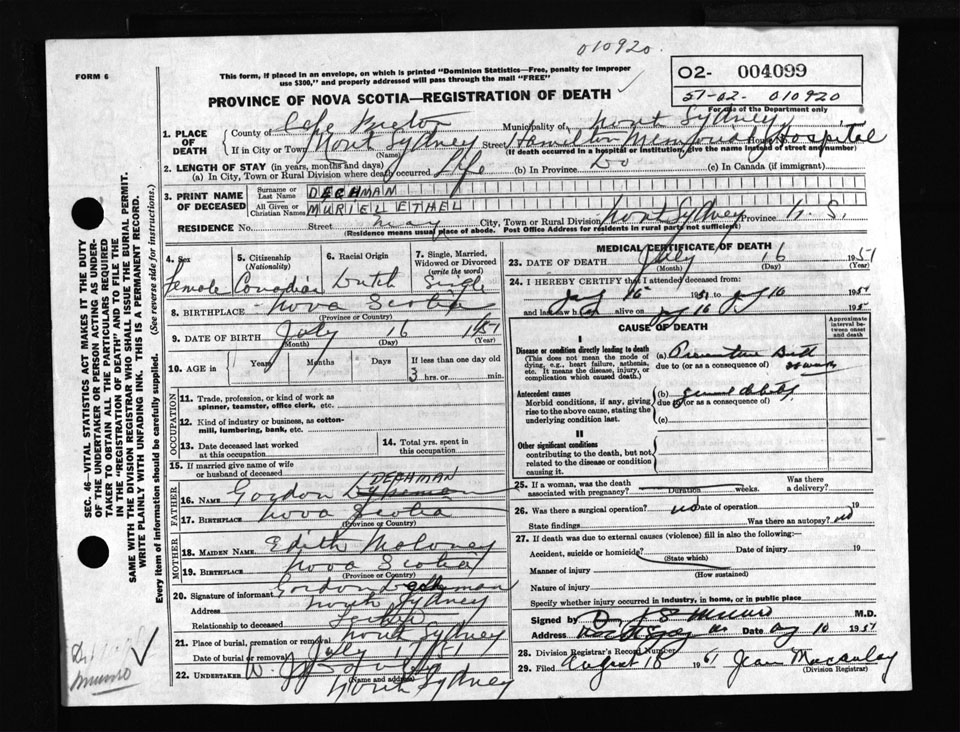 010920.
FORM 6
This form, if placed in an envelope, on which is printed "Dominion Statistics—Free, penalty for improper
use $300," and properly addressed will pass through the mail "FREE"
PROVINCE OF NOVA SCOTIA—REGISTRATION OF DEATH
O2- 004099
51-02- 010920
For use of the Department only
1. PLACE OF DEATH
County of Cape Breton Municipality of North Sydney
If in City or Town North Sydney Street Hamilton Memorial Hospital
(Name) (If death occurred in a hospital or institution, give the name instead of street and number)
2. LENGTH OF STAY (in years, months and days)
(a) In City, Town or Rural Division where death occurred Life (b) In Province Do (c) In Canada (if immigrant)
3. PRINT NAME OF DECEASED
Surname or Last Name DECHMAN
All Given or Christian Names MURIEL ETHEL
RESIDENCE No. Street May City, Town or Rural Division North Sydney Province N. S.
(Residence means usual place of abode. Post Office Address for residents in rural parts not sufficient)
4. Sex Female
5. Citizenship (Nationality) Canadian
6. Racial Origin Dutch
7. Single, Married, Widowed or Divorced (write the word) Single
8. BIRTHPLACE Nova Scotia
(Province or Country)
9. DATE OF BIRTH July 16 1951
(Month) (Day) (Year)
10. AGE in Years Months Days If less than one day old
3 hrs. or min.
OCCUPATION
11. Trade, profession, or kind of work as spinner, teamster, office clerk, etc.
12. Kind of industry or business, as cotton-mill, lumbering, bank, etc.
13. Date deceased last worked at this occupation
14. Total yrs. spent in this occupation
15. If married give name of wife or husband of deceased
DECHMAN
FATHER
16. NAME Gordon
17. BIRTHPLACE Nova Scotia
(Province or Country)
MOTHER
18. MAIDEN NAME Edith Moloney
19. BIRTHPLACE Nova Scotia
(Province or Country)
20. Signature of informant Gordon Dechman
Address North Sydney
Relationship to deceased Father
21. Place of burial, cremation or removal North Sydney
Date of burial or removal July 17/51
22. UNDERTAKER
(Name and address)
North Sydney
MEDICAL CERTIFICATE OF DEATH
23. DATE OF DEATH July 16 1951
(Month) (Day) (Year)
24. I HEREBY CERTIFY that I attended deceased from:
16 1951 to 16 1951
and last saw h alive on 16 195
CAUSE OF DEATH
Approximate interval between onset and death
I
Disease or condition directly leading to death
(This does not mean the mode of dying, e.g., heart failure, asthenia, etc. It means the disease, injury, or complication which caused death.)
(a) Premature Birth
due to (or as a consequence of)
Antecedent causes
Morbid conditions, if any, giving rise to the above cause, stating the underlying condition last.
(b) General debility
due to (or as a consequence of)
(c)
II
Other significant conditions
contributing to the death, but not related to the disease or condition causing it.
25. If a woman, was the death associated with pregnancy? Duration weeks. Was there a delivery?
26. Was there a surgical operation? no Date of operation 19
State findings Was there an autopsy? no
27. If death was due to external causes (violence) fill in also the following:—
Accident, suicide or homicide? Date of injury 19
(State which)
Manner of injury
(How sustained)
Nature of injury
Specify whether injury occurred in industry, in home, or in public place
Signed by Munro M.D.
Address Date 1951
28. Division Registrar's Record Number
29. Filed August 18 1961 Jean Macaulay
(Division Registrar)
SEC. 46—VITAL STATISTICS ACT MAKES IT THE DUTY
OF THE UNDERTAKER OR PERSON ACTING AS UNDER-
TAKER TO OBTAIN ALL THE PARTICULARS REQUIRED
IN THE "REGISTRATION OF DEATH" AND TO FILE THE
SAME WITH THE DIVISION REGISTRAR WHO SHALL ISSUE THE BURIAL PERMIT.
WRITE PLAINLY WITH UNFADING INK. THIS IS A PERMANENT RECORD.
Every item of information should be carefully supplied. (See reverse side for instructions.)
Dr.
Munro